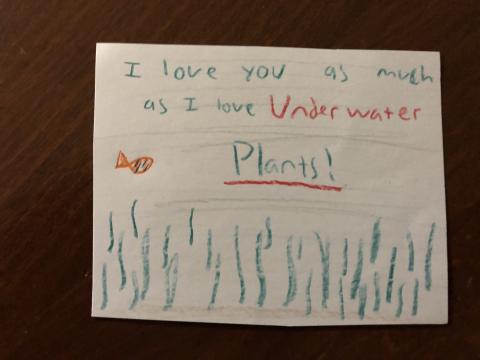 I love you as much
as I love Underwater
Plants!